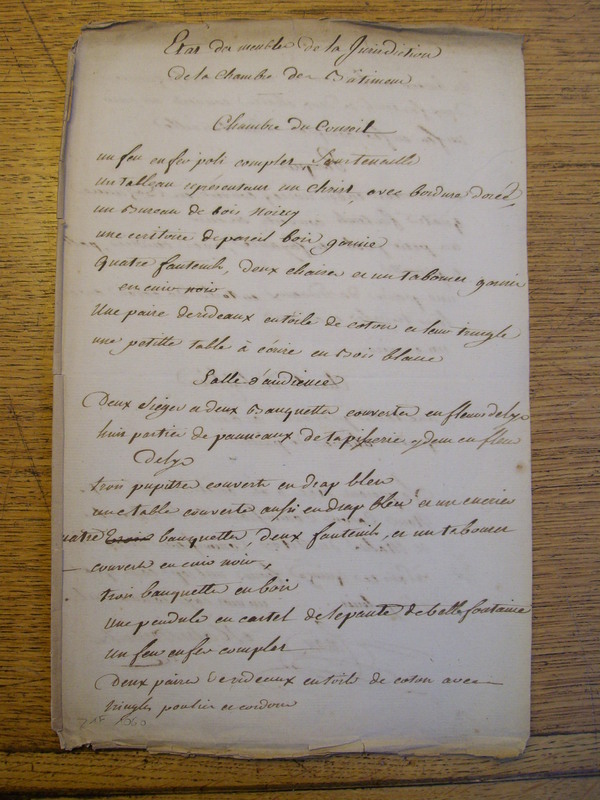 Etat des meubles de la Jurisdiction
de la Chambre des Bâtimens
Chambre du Conseil
un feu en fer poli complet
un tableau représentant un Christ avec bordure dorée
un Bureau de bois Noircy
une ecritoire de pareil bois garnie
quatre fauteuils, deux chaises et un tabouret garnis
en cuir noir
Une paire de rideaux en toile de coton et leur tringle
une petitte table à écrire en Bois blanc
Salle d'audience
Deux sièges a deux Banquettes couvertes en fleurs de lys
huit parties de panneaux de tapisserie ydem en fleur
de lys
trois pupitre couverts en drap bleu
une table couverte aussi en drap bleu et un encrier
quatre trois banquettes, deux fauteuils, et un tabouret
couvert en cuir noir,
trois banquettes en bois
une pendule en cartel de Lepaute de belle fontaine
un feu en fer complet
Deux paires de rideaux en toile de coton avec
tringles poulies et cordons